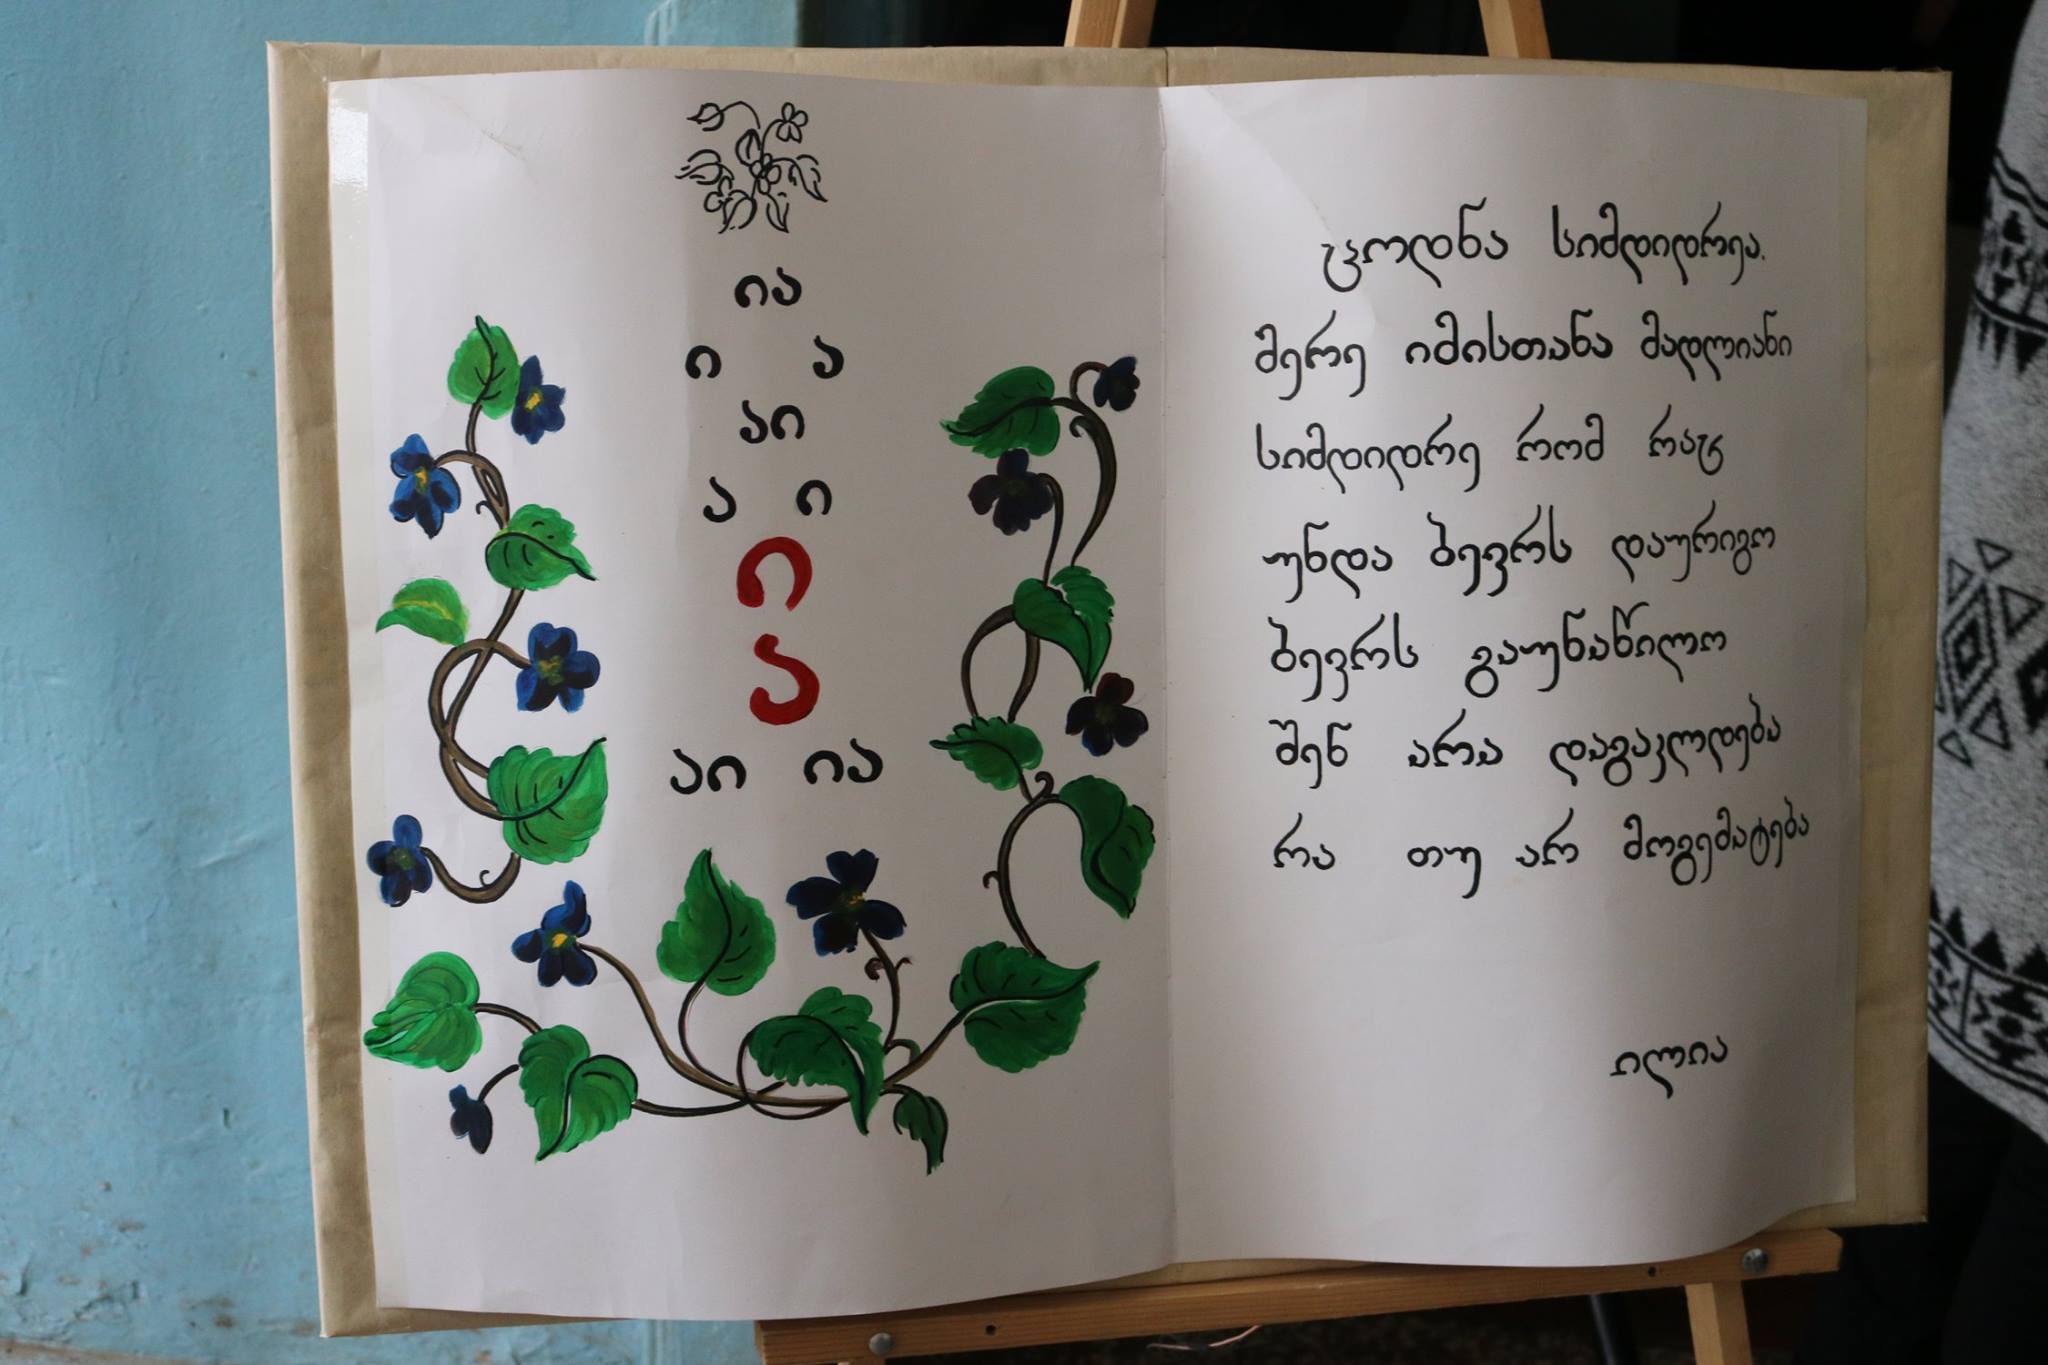 ია
ი ა
აი
ა ი
ი
ა
აი ია
ცოდნა სიმდიდრეა.
მერე იმისთანა მადლიანი
სიმდიდრე რომ რაც
უნდა ბევრს დაურიგო
ბევრს გაუნაწილო
შენ არა დაგაკლდება
რა თუ არ მოგემატება
ილია